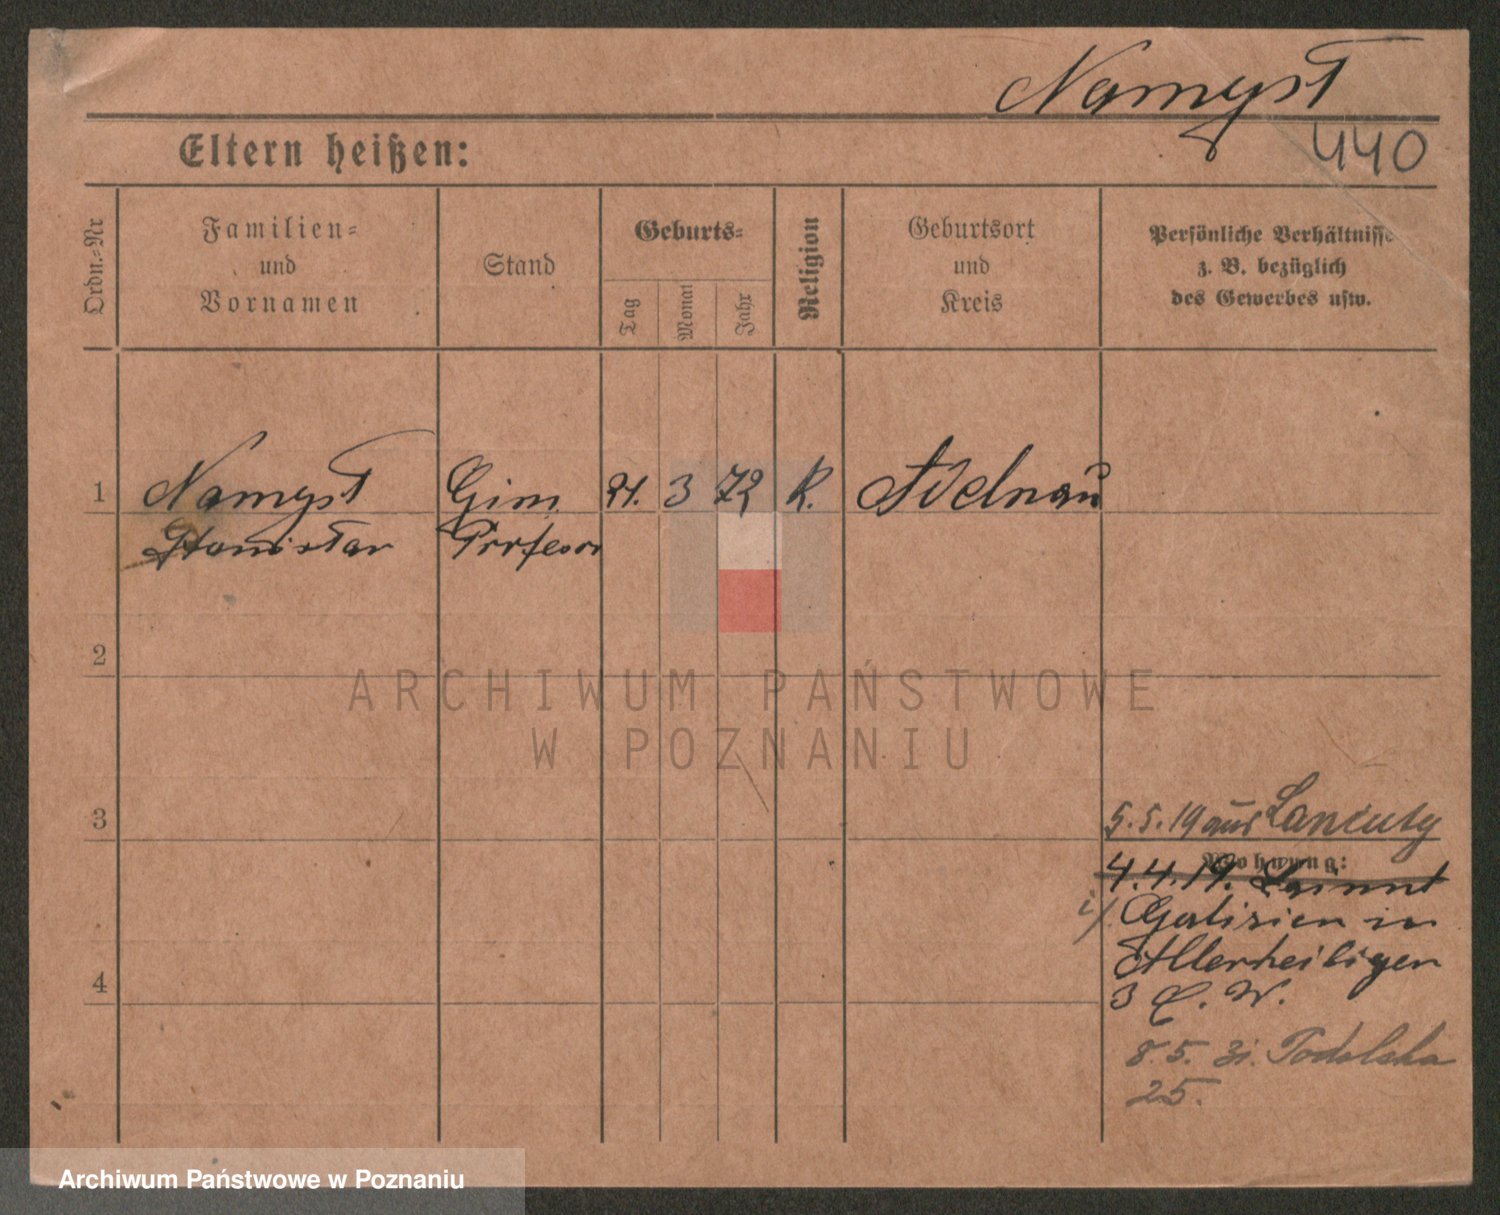 Namyst
440
Eltern heißen:
Ordn.-Nr
Familien-
und
Vornamen
Stand
Geburts-
Tag
Monat
Jahr
Religion
Geburtsort
und
Kreis
Persönliche Verhältnisse
z. B. bezüglich
des Gewerbes usw.
1 Namyst Gim. 21. 3 72 K. Adelnau
Stanislar Professor
2
ARCHIWUM PAŃSTWOWE
W POZNANIU
3
5.5.19 aus Lancuty
Wohnung:
4.4.19.
Galizien in
Allerheiligen
4
3 b. W.
8.5. 31. Podolska
25.
Archiwum Państwowe w Poznaniu